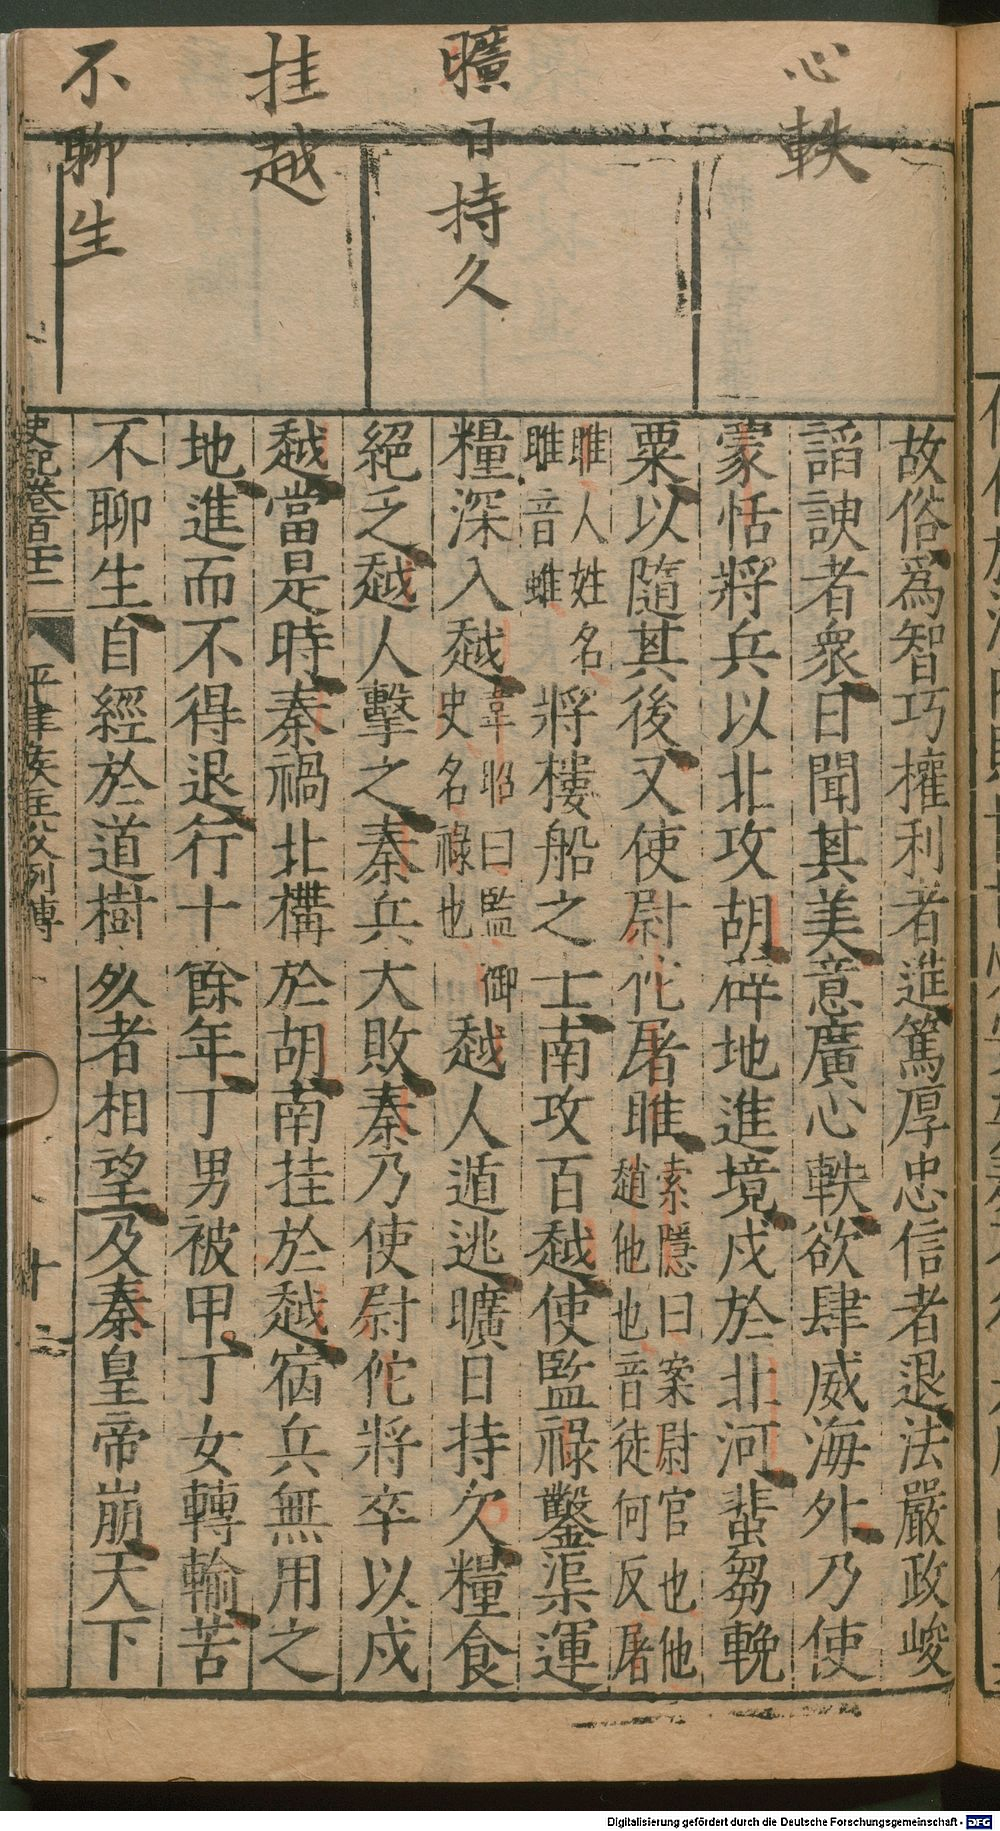 心軼
曠日持久
挂越
不聊生
故俗爲智巧權利者進篤厚忠信者退法嚴政峻
諂諛者衆日聞其美意廣心軼欲肆威海外乃使
蒙恬將兵以北攻胡辟地進境戍於北河蜚芻輓
粟以隨其後又使尉佗屠睢索隱曰案尉官也他
趙他也音徒何反屠
睢人姓名
睢音蜼將樓船之士南攻百越使監祿鑿渠運
糧深入越韋昭曰監御
史名祿也越人遁逃曠日持久糧食
絕乏越人擊之秦兵大敗秦乃使尉佗將卒以戍
越當是時秦禍北構於胡南挂於越宿兵無用之
地進而不得退行十餘年丁男被甲丁女轉輸苦
不聊生自經於道樹死者相望及秦皇帝崩天下
史記卷百十二 平津侯主父列傳 十二
Digitalisierung gefördert durch die Deutsche Forschungsgemeinschaft - DFG